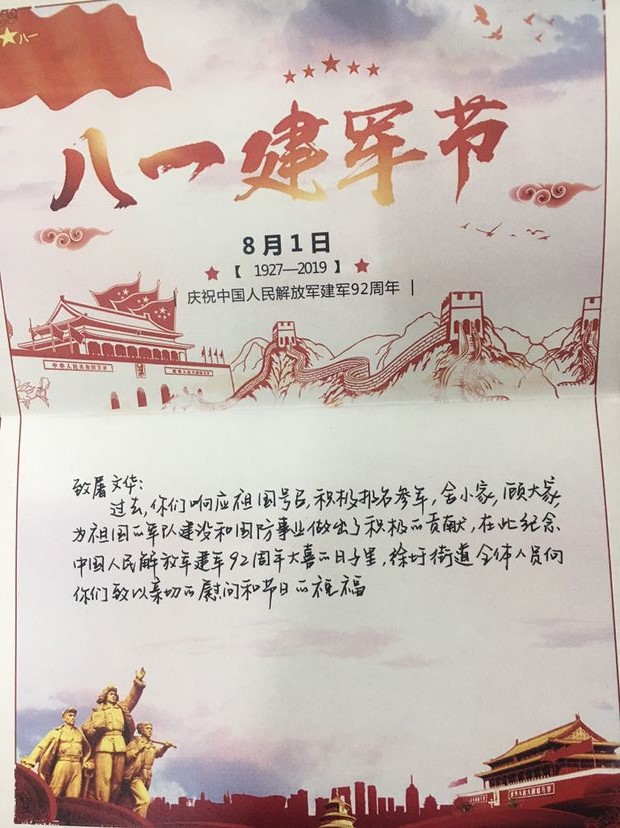 八一
八一建军节
8月1日
【 1927—2019 】
庆祝中国人民解放军建军92周年
致屠文华:
过去,你们响应祖国号召,积极报名参军,舍小家,顾大家,
为祖国的军队建设和国防事业做出了积极的贡献,在此纪念
中国人民解放军建军92周年大喜的日子里,徐圩街道全体人员向
你们致以亲切的慰问和节日的祝福